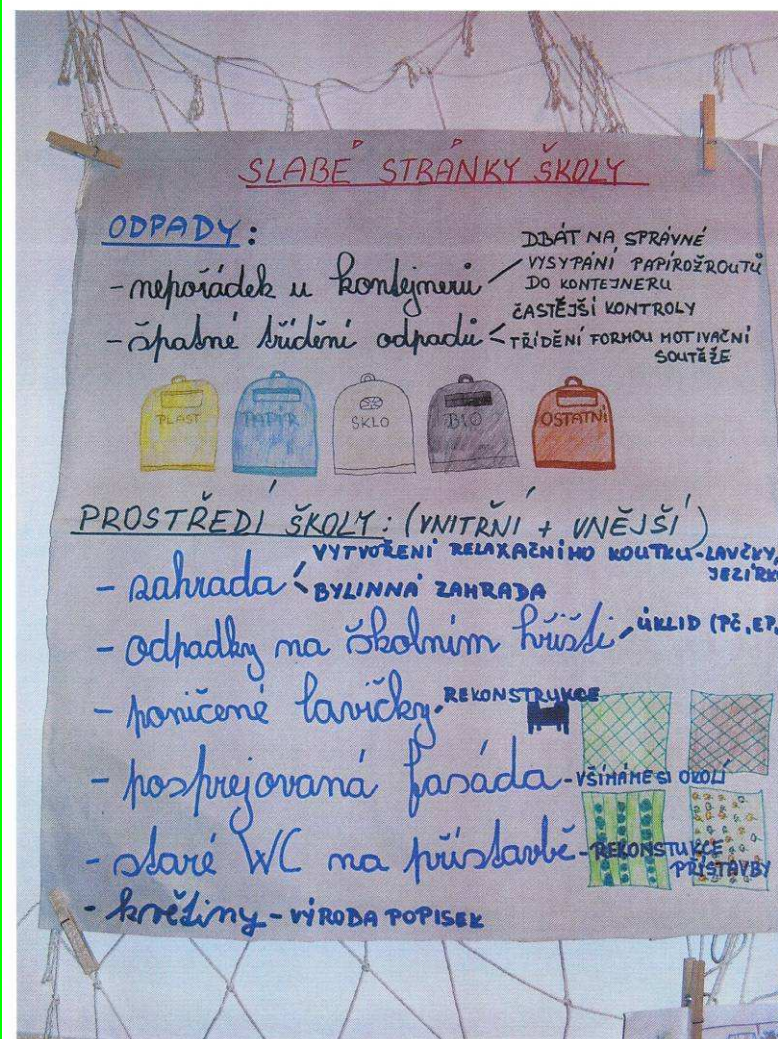 SLABÉ STRÁNKY ŠKOLY
ODPADY:
- nepořádek u kontejnerů
DBÁT NA SPRÁVNÉ
VYSYPÁNÍ PAPÍROŽROUTŮ
DO KONTEJNERU
- špatné třídění odpadů
ČASTĚJŠÍ KONTROLY
TŘÍDĚNÍ FORMOU MOTIVAČNÍ
SOUTĚŽE
PLAST PAPÍR SKLO BIO OSTATNÍ
PROSTŘEDÍ ŠKOLY: (VNITŘNÍ + VNĚJŠÍ)
- zahrada
VYTVOŘENÍ RELAXAČNÍHO KOUTKU-LAVČKY,
JEZÍRK
BYLINNÁ ZAHRADA
- odpadky na školním hřišti
ÚKLID (PČ, EP,
- poničené lavičky - REKONSTRUKCE
- posprejovaná fasáda - VŠÍMÁME SI OKOLÍ
- staré WC na přístavbě - REKONSTUKCE
PŘÍSTAVBY
- květiny - VÝROBA POPISEK